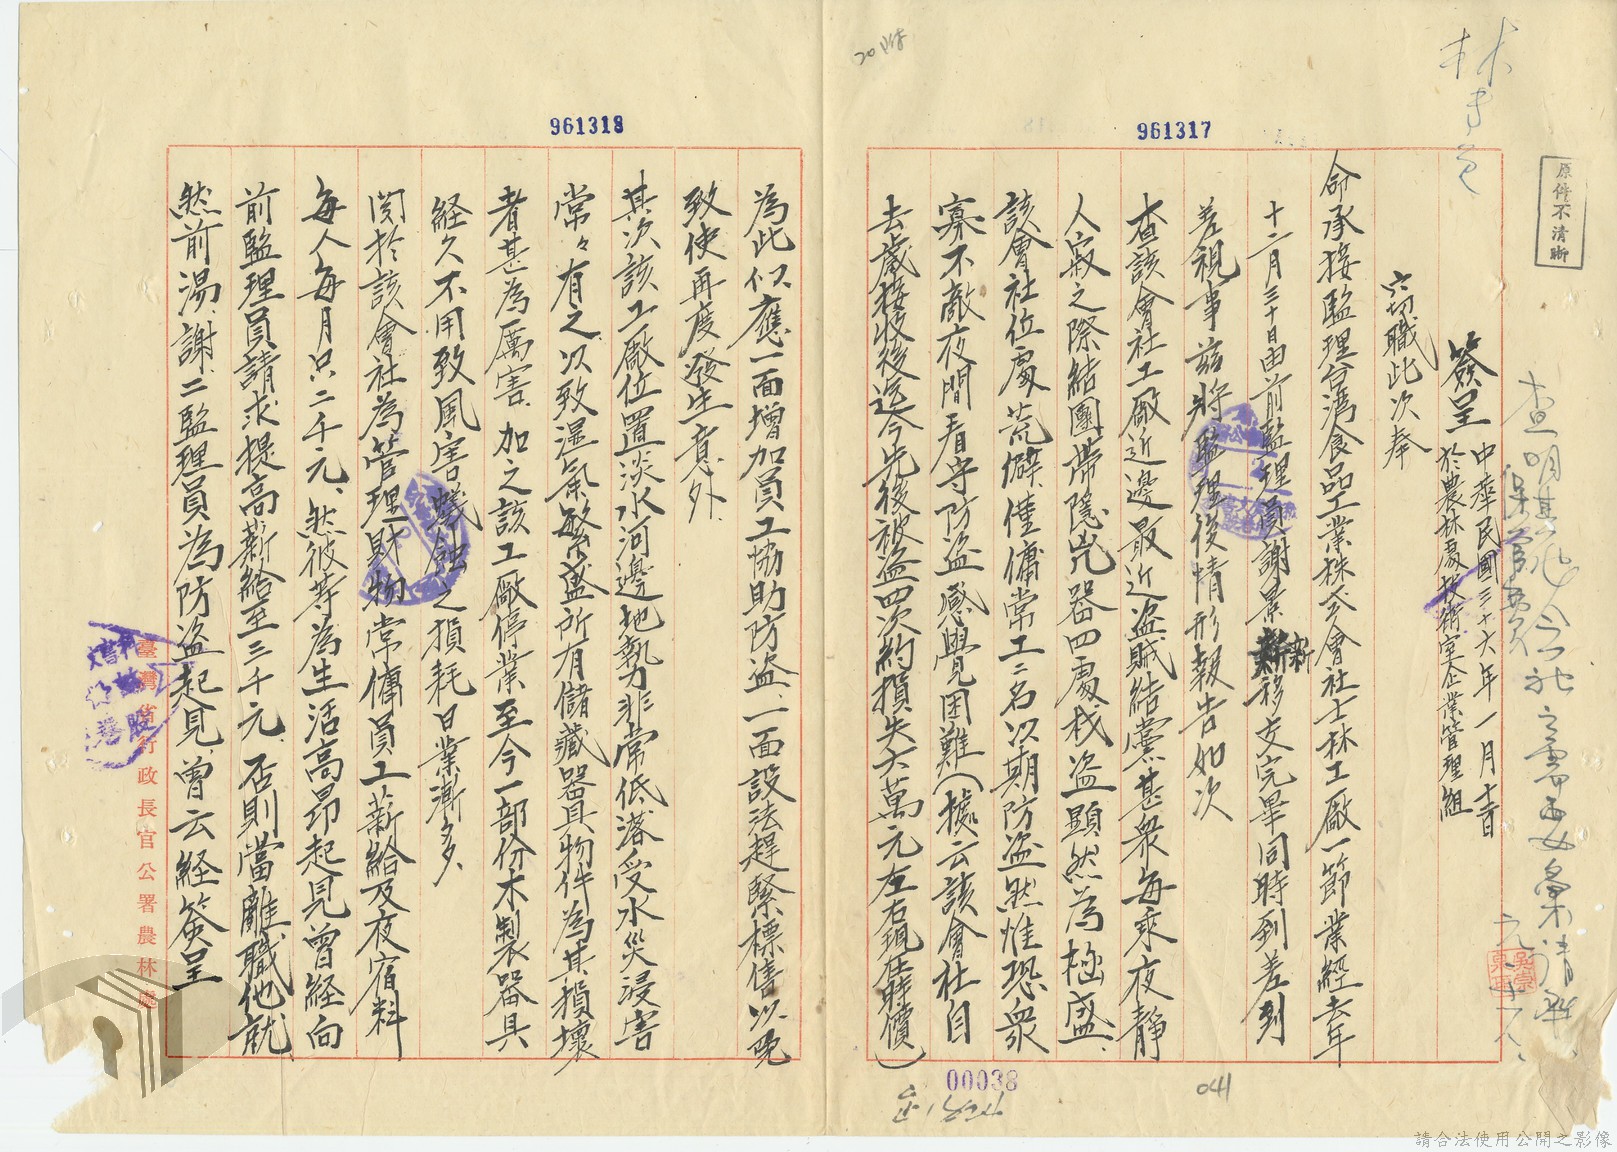 20附
961317
961318
原件不清晰
簽呈 中華民國三十六年一月十二日
於農林處技術室企業管理組
六切職此次奉
命承接監理台灣食品工業株式會社士林工廠一節業經去年
十二月三十日由前監理員謝景新移交完畢同時到差到
差視事茲將監理後情形報告如次
查該會社工廠近邊最近盜賊結黨甚眾每乘夜靜
人寂之際結團帶隱兇器四處找盜顯然為極盛、
該會社位處荒僻、僅傭常工二名以期防盜然惟恐眾
寡不敵夜間看守防盜感覺困難(據云該會社自
去歲接收後迄今先後被盜四次約損失六萬元左右現在時價)
為此似應一面增加員工協助防盜、一面設法趕緊標售以免
致使再度發生意外
其次該工廠位置淡水河邊地勢非常低落受水災浸害
常々有之以致湿氣繁盛所有儲藏器具物件為其損壞
者甚為厲害、加之該工廠停業至今一部份木製器具
経久不用致風害蟻蝕之損耗日業漸多、
関於該會社為管理財物常傭員工薪給及夜宿料
每人每月只二千元、然彼等為生活高昂起見曾経向
前監理員請求提高薪給至三千元、否則當離職他就
然前湯、謝、二監理員為防盜起見、曾云経簽呈
臺灣省行政長官公署農林處
00038
041
請合法使用公開之影像